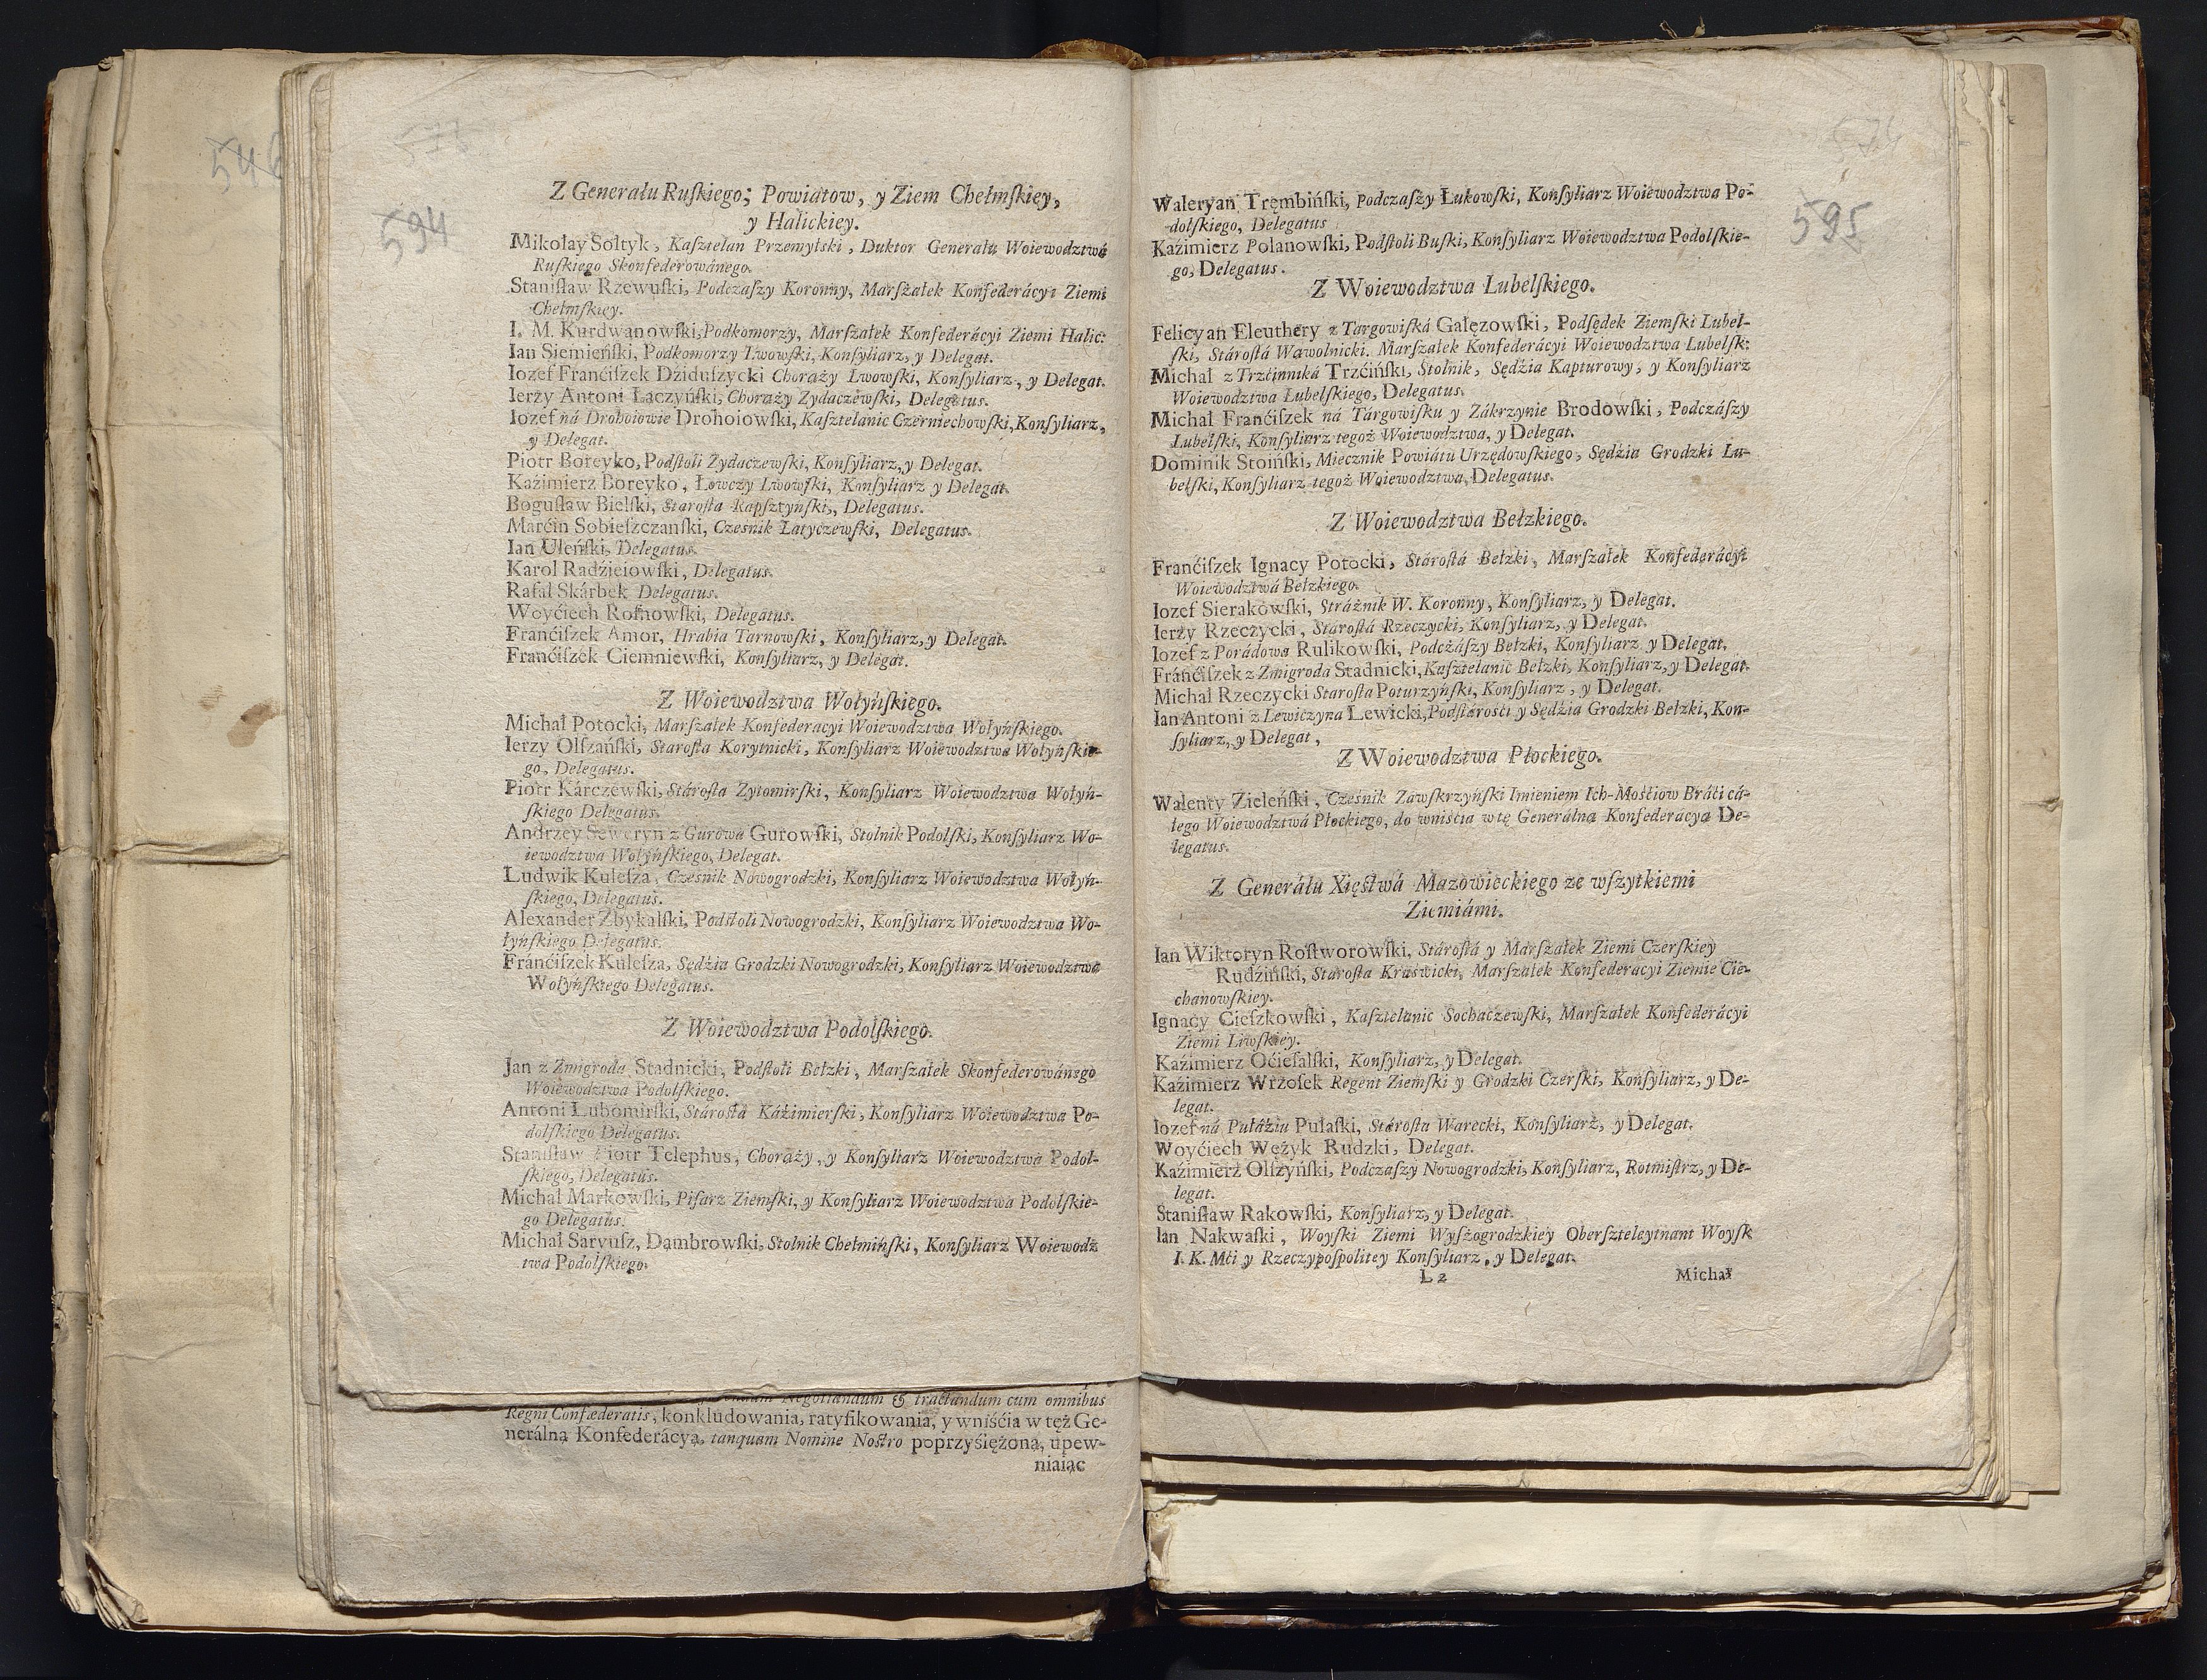 546
573
594
Z Generału Ruſkiego; Powiatow, y Ziem Chełmſkiey,
y Halickiey.
Mikołay Sołtyk, Kaſztelan Przemyſki, Duktor Generału Woiewodztwá
Ruſkiego Skonfederowánego.
Staniſław Rzewuſki, Podczaſzy Koronny, Marſzałek Konfederácyi Ziemi
Chełmſkiey.
I. M. Kurdwanowſki, Podkomorzy, Marſzałek Konfederácyi Ziemi Halic:
Ian Siemieńſki, Podkomorzy Lwowſki, Konſyliarz, y Delegat.
Iozef Franćiſzek Dźiduſzycki Chorąży Lwowſki, Konſyliarz, y Delegat.
Ierzy Antoni Łaczyńſki, Chorąży Zydaczewſki, Delegatus.
Iozef ná Drohoiowie Drohoiowſki, Kaſztelanic Czerniechowſki, Konſyliarz,
y Delegat.
Piotr Boreyko, Podſtoli Zydaczewſki, Konſyliarz, y Delegat.
Kaźimierz Boreyko, Łowczy Lwowſki, Konſyliarz y Delegat.
Boguſław Bielſki, Staroſta Rapſztyńſki, Delegatus.
Marćin Sobieſzczanſki, Czesnik Łatyczewſki, Delegatus.
Ian Uleńſki, Delegatus.
Karol Radźieiowſki, Delegatus.
Rafał Skárbek Delegatus.
Woyćiech Roſnowſki, Delegatus.
Franćiſzek Amor, Hrabia Tarnowſki, Konſyliarz, y Delegat.
Franćiſzek Ciemniewſki, Konſyliarz, y Delegat.
Z Woiewodztwa Wołyńſkiego.
Michał Potocki, Marſzałek Konfederacyi Woiewodztwa Wołyńſkiego.
Ierzy Olſzańſki, Staroſta Korytnicki, Konſyliarz Woiewodztwa Wołyńſkie-
go, Delegatus.
Piotr Kárczewſki, Stároſta Zytomirſki, Konſyliarz Woiewodztwa Wołyń-
ſkiego Delegatus.
Andrzey Seweryn z Gurowa Gurowſki, Stolnik Podolſki, Konſyliarz Wo-
iewodztwa Wołyńſkiego, Delegat.
Ludwik Kuleſza, Czesnik Nowogrodzki, Konſyliarz Woiewodztwa Wołyń-
ſkiego, Delegatus.
Alexander Zbykalſki, Podſtoli Nowogrodzki, Konſyliarz Woiewodztwa Wo-
łyńſkiego Delegatus.
Fránćiſzek Kuleſza, Sędźia Grodzki Nowogrodzki, Konſyliarz Woiewodztwa
Wołyńſkiego Delegatus.
Z Woiewodztwa Podolſkiego.
Jan z Zmigroda Stadnicki, Podſtoli Bełzki, Marſzałek Skonfederowánego
Woiewodztwa Podolſkiego.
Antoni Lubomirſki, Stároſtá Káźimierſki, Konſyliarz Woiewodztwa Po-
dolſkiego Delegatus.
Stanisław Piotr Telephus, Chorąży, y Konſyliarz Woiewodztwa Podol-
ſkiego, Delegatus.
Michał Markowſki, Piſarz Ziemſki, y Konſyliarz Woiewodztwa Podolſkie-
go Delegatus.
Michał Saryuſz, Dąmbrowſki, Stolnik Chełmińſki, Konſyliarz Woiewodz
twa Podolſkiego.
Negotiandum & tractandum cum omnibus
Regni Confœderatis, konkludowania, ratyfikowania, y wniśćia w tęż Ge-
nerálną Konfederácyą, tanquam Nomine Noſtro poprzyśiężoną, upew-
niaiąc
574
595
Waleryan Tręmbińſki, Podczaſży Łukowſki, Konſyliarz Woiewodztwa Po-
dolſkiego, Delegatus
Kaźimierz Polanowſki, Podſtoli Buſki, Konſyliarz Woiewodztwa Podolſkie-
go, Delegatus.
Z Woiewodztwa Lubelſkiego.
Felicyan Eleuthery z Targowiſká Gałęzowſki, Podſędek Ziemſki Lubel-
ſki, Stároſtá Wąwolnicki. Marſzałek Konfederácyi Woiewodztwa Lubelſk:
Michał z Trzćinniká Trzćińſki, Stolnik, Sędźia Kapturowy, y Konſyliarz
Woiewodztwa Lubelſkiego, Delegatus.
Michał Franćiſzek ná Tárgowiſku y Zákrzynie Brodowſki, Podczáſzy
Lubelſki, Konſyliarz tegoż Woiewodztwa, y Delegat.
Dominik Stoińſki, Miecznik Powiátu Urzędowſkiego, Sędźia Grodzki Lu-
belſki, Konſyliarz tegoż Woiewodztwa, Delegatus.
Z Woiewodztwa Bełzkiego.
Franćiſzek Ignacy Potocki, Stároſtá Bełzki, Marſzałek Konfederácyi
Woiewodztwá Bełzkiego.
Iozef Sierakowſki, Stráżnik W. Koronny, Konſyliarz, y Delegat.
Ierzy Rzeczycki, Stároſtá Rzeczycki, Konſyliarz, y Delegat.
Iozef z Porádowa Rulikowſki, Podczáſzy Bełzki, Konſyliarz y Delegat.
Fránćiſzek z Zmigroda Stadnicki, Kaſztelanic Bełzki, Konſyliarz, y Delegat.
Michał Rzeczycki Staroſta Poturzyńſki, Konſyliarz, y Delegat.
Ian Antoni z Lewiczyna Lewicki, Podſtárośći y Sędźia Grodzki Bełzki, Kon-
ſyliarz, y Delegat,
Z Woiewodztwa Płockiego.
Walenty Zieleńſki, Cześnik Zawſkrzyński Imieniem Ich-Mośćiow Bráći cá-
łego Woiewodztwá Płockiego, do wniśćia w tę Generálną Konfederacyą De-
legatus.
Z Generáłu Xięſtwá Mazowieckiego ze wſzytkiemi
Ziemiámi.
Ian Wiktoryn Roſtworowſki, Stároſtá y Marſzałek Ziemi Czerſkiey
Rudźińſki, Staroſta Kraswicki, Marſzałek Konfederacyi Ziemie Cie-
chanowſkiey.
Ignacy Cieſzkowſki, Kaſztelanic Sochaczewſki, Marſzałek Konfederácyi
Ziemi Liwſkiey.
Kaźimierz Oćieſalſki, Konſyliarz, y Delegat.
Kaźimierz Wrzoſek Regent Ziemſki y Grodzki Czerſki, Konſyliarz, y De-
legat.
Iozef ná Pułáźiu Pułaſki, Stároſta Warecki, Konſyliarz, y Delegat.
Woyćiech Wężyk Rudzki, Delegat.
Kaźimierz Olſzyńſki, Podczaſzy Nowogrodzki, Konſyliarz, Rotmiſtrz, y De-
legat.
Staniſław Rakowſki, Konſyliarz, y Delegat.
Ian Nakwaſki, Woyſki Ziemi Wyſzogrodzkiey Oberſzteleytnant Woyſk
I. K. Mći y Rzeczypoſpolitey Konſyliarz, y Delegat.
L 2
Michał